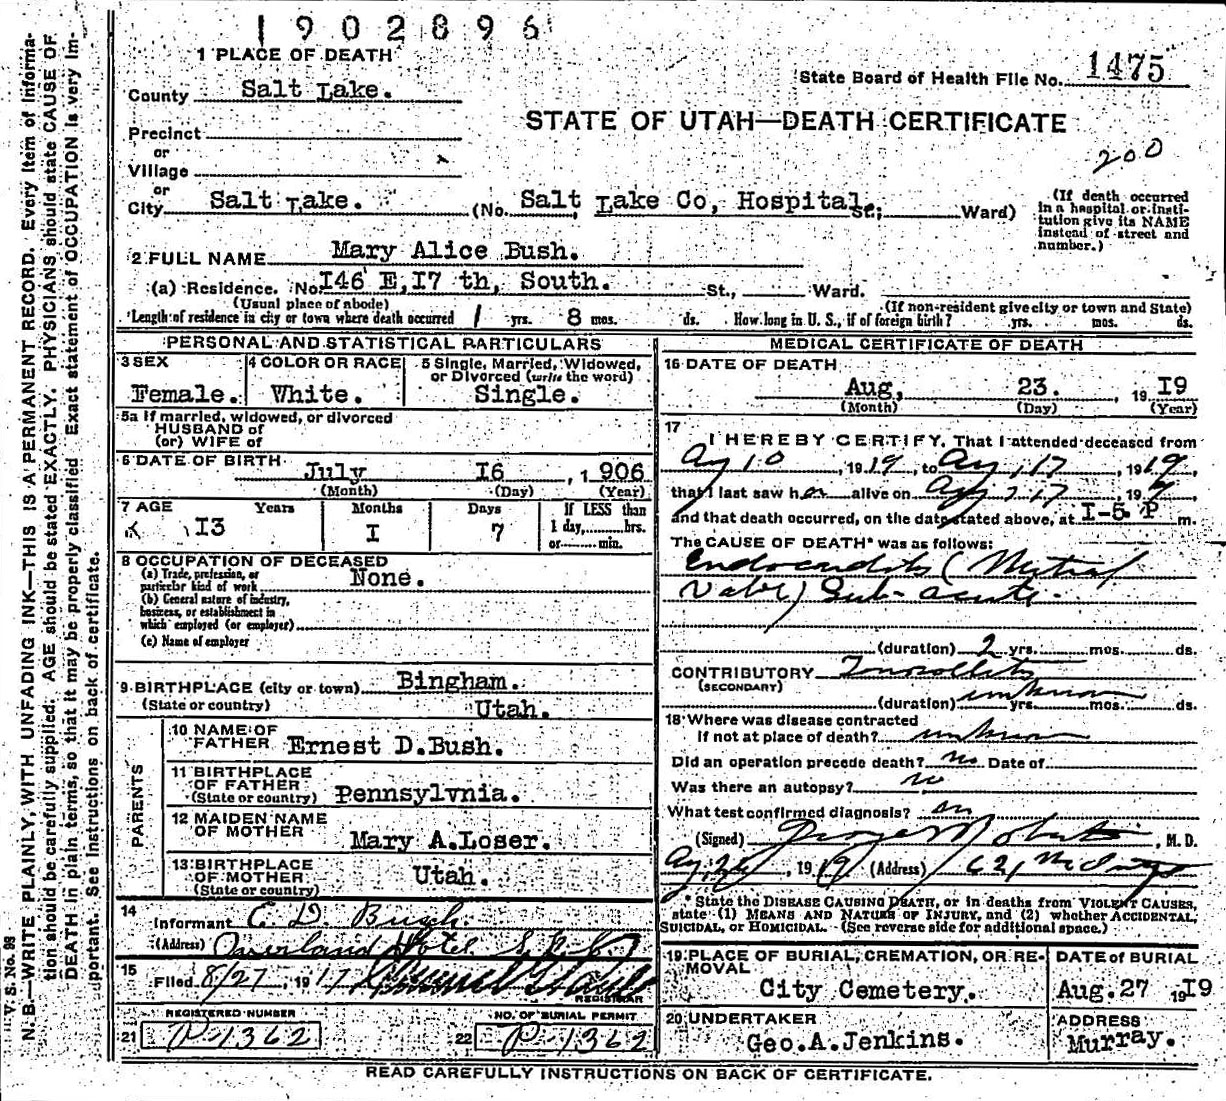 1902896
1 PLACE OF DEATH
State Board of Health File No. 1475
County Salt Lake.
STATE OF UTAH—DEATH CERTIFICATE
Precinct
or
200
Village
or
City Salt Lake. (No. Salt Lake Co, Hospital. St.; Ward)
(If death occurred in a hospital or insti-
tution give its NAME
instead of street and
number.)
2 FULL NAME Mary Alice Bush.
(a) Residence. No. I46 E, I7 th, South. St., Ward.
(Usual place of abode) (If non-resident give city or town and State)
Length of residence in city or town where death occurred 1 yrs. 8 mos. ds. How long in U. S., if of foreign birth? yrs. mos. ds.
PERSONAL AND STATISTICAL PARTICULARS
3 SEX Female.
4 COLOR OR RACE White.
5 Single, Married, Widowed,
or Divorced (write the word)
Single.
5a If married, widowed, or divorced
HUSBAND of
(or) WIFE of
6 DATE OF BIRTH July I6 , 1 906
(Month) (Day) (Year)
7 AGE Years Months Days If LESS than
I3 I 7 1 day, hrs.
or min.
8 OCCUPATION OF DECEASED
(a) Trade, profession, or
particular kind of work None.
(b) General nature of industry,
business, or establishment in
which employed (or employer)
(c) Name of employer
9 BIRTHPLACE (city or town) Bingham.
(State or country) Utah.
PARENTS
10 NAME OF
FATHER Ernest D.Bush.
11 BIRTHPLACE
OF FATHER
(State or country) Pennsylvnia.
12 MAIDEN NAME
OF MOTHER Mary A.Loser.
13 BIRTHPLACE
OF MOTHER Utah.
(State or country)
14
Informant E. D. Bush.
(Address) Overland Hotel S.L.C.
15
Filed 8/27, 19 17
REGISTRAR
REGISTERED NUMBER NO. OF BURIAL PERMIT
21 P-1362 22 P-1362
MEDICAL CERTIFICATE OF DEATH
16 DATE OF DEATH
Aug, 23. , 19 I9
(Month) (Day) (Year)
17
I HEREBY CERTIFY, That I attended deceased from
Aug 10 , 19 19, to Aug, 17 , 19 19,
that I last saw her alive on Aug 17 , 19
and that death occurred, on the date stated above, at I-5 P m.
The CAUSE OF DEATH* was as follows:
Endocarditis (Mytral
Valve) Sub-acute.
(duration) 2 yrs. mos. ds.
CONTRIBUTORY Tonsillitis
(SECONDARY)
(duration) unknown yrs. mos. ds.
18 Where was disease contracted
If not at place of death? unknown
Did an operation precede death? No. Date of
Was there an autopsy? No
What test confirmed diagnosis?
(Signed) George Roberts , M. D.
Aug, 24 , 19 19 (Address) 621 McIntyre
* State the DISEASE CAUSING DEATH, or in deaths from VIOLENT CAUSES,
state (1) MEANS AND NATURE OF INJURY, and (2) whether ACCIDENTAL,
SUICIDAL, or HOMICIDAL. (See reverse side for additional space.)
19 PLACE OF BURIAL, CREMATION, OR RE-
MOVAL
City Cemetery.
DATE of BURIAL
Aug. 27 19 I9
20 UNDERTAKER
Geo.A.Jenkins.
ADDRESS
Murray.
READ CAREFULLY INSTRUCTIONS ON BACK OF CERTIFICATE.
V. S. No. 98
N. B.—WRITE PLAINLY, WITH UNFADING INK—THIS IS A PERMANENT RECORD. Every item of informa-
tion should be carefully supplied: AGE should be stated EXACTLY. PHYSICIANS should state CAUSE OF
DEATH in plain terms, so that it may be properly classified Exact statement of OCCUPATION is very im-
portant. See instructions on back of certificate.